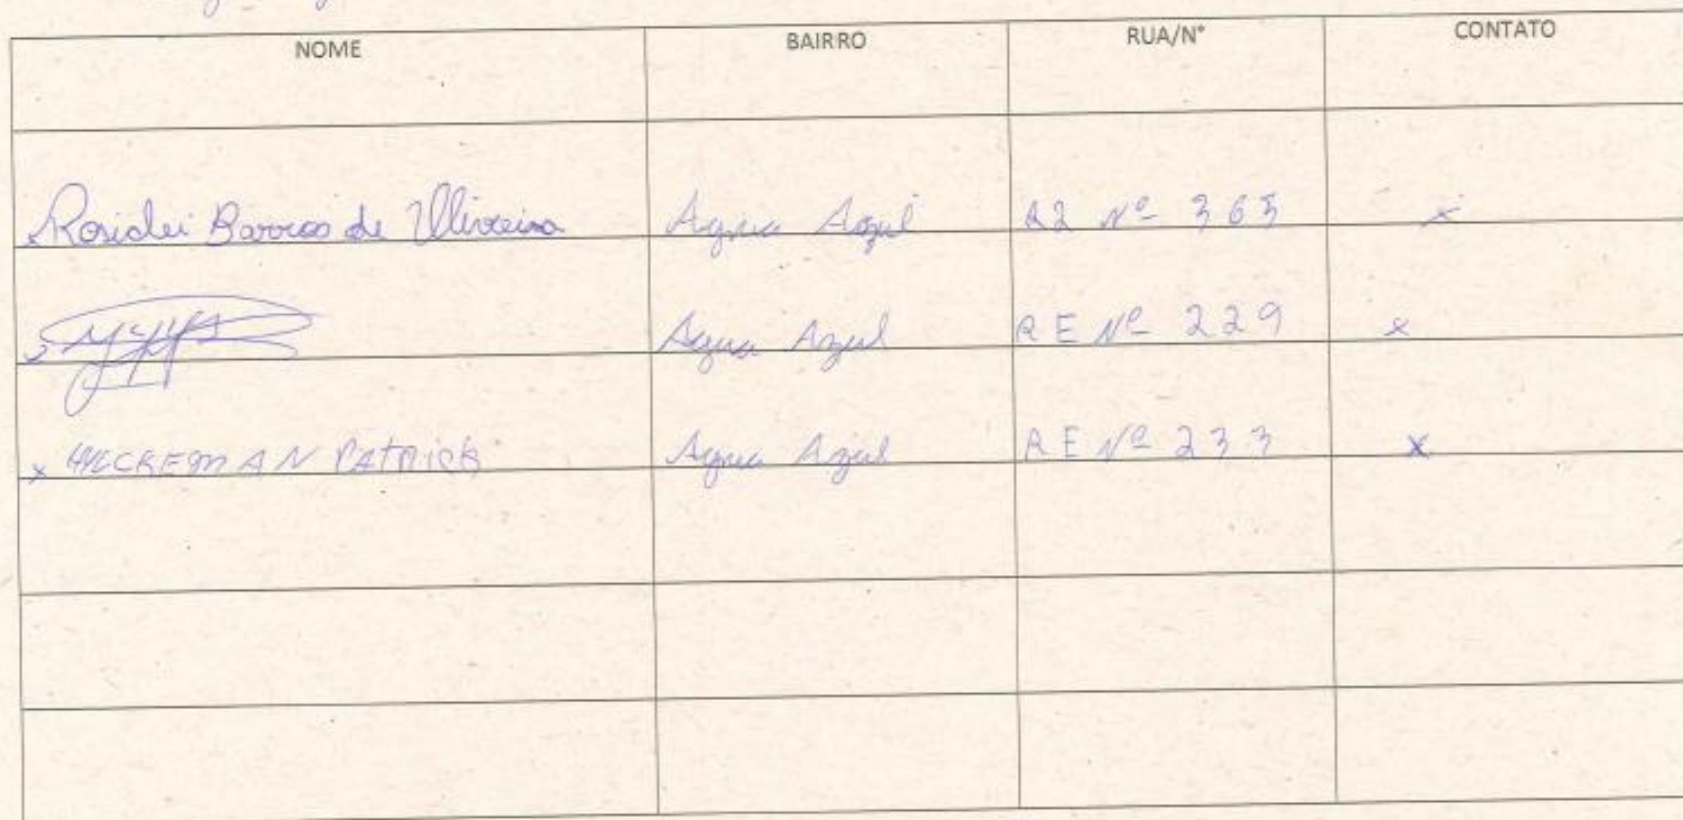 NOME BAIRRO RUA/N° CONTATO
x Rosidei Barros de Oliveira Agua Azul R2 Nº 365 x
x Agua Azul R E Nº 229 x
x PATRICK Agua Azul R E Nº 233 x